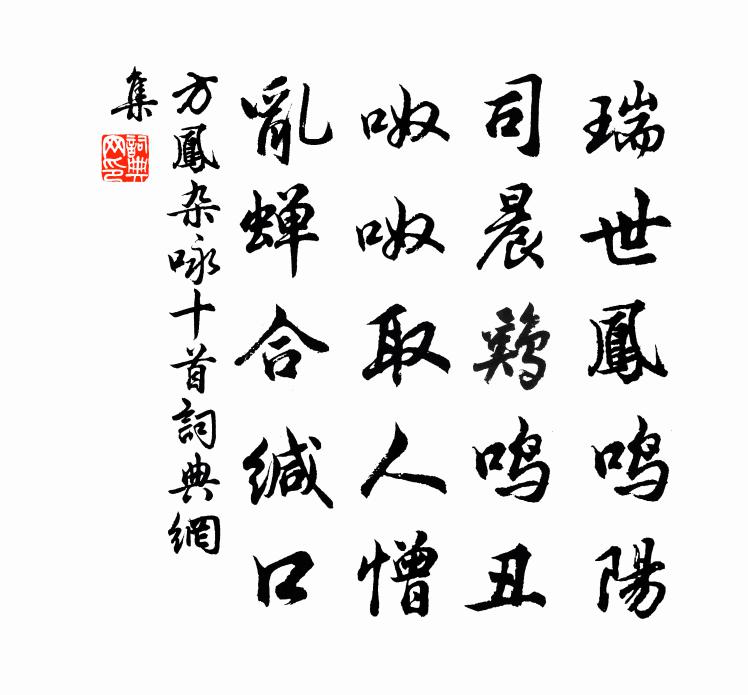 瑞世鳳鸣陽
司晨鷄鸣丑
呶呶取人憎
亂蝉合缄口
方鳳杂咏十首詞典網
集
詞典网印